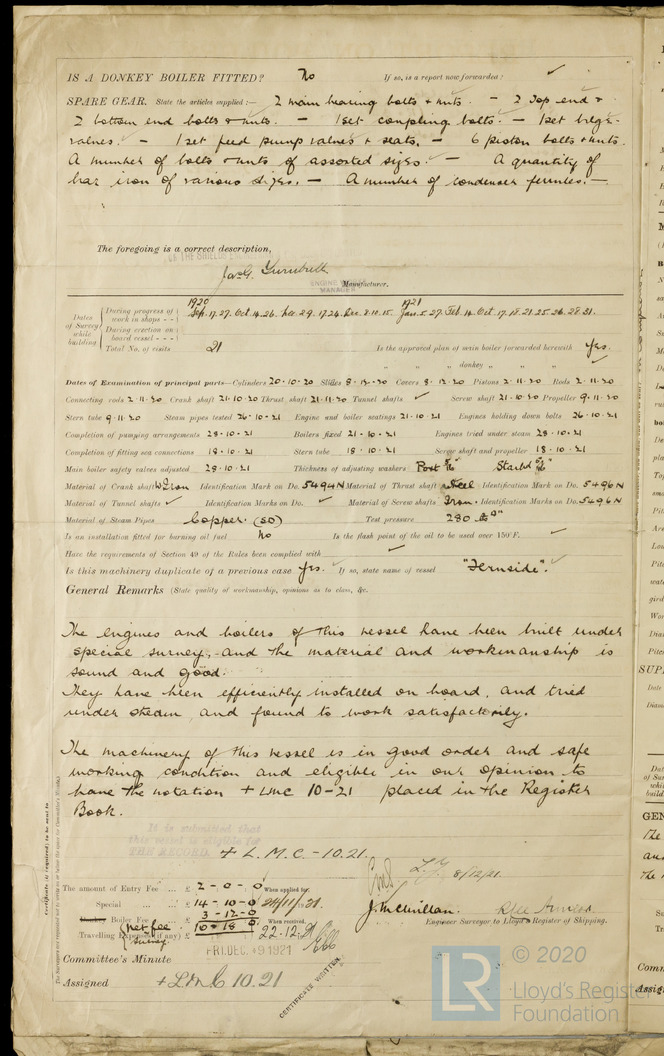 IS A DONKEY BOILER FITTED? No If so, is a report now forwarded: ✓
SPARE GEAR. State the articles supplied:— 2 main bearing bolts & nuts. — 2 top end &
2 bottom end bolts & nuts. — 1 set coupling bolts. — 1 set bilge
valves. — 1 set feed pump valves & seats. — 6 piston bolts & nuts.
A number of bolts & nuts of assorted sizes. — A quantity of
bar iron of various sizes. — A number of condenser ferrules. —
The foregoing is a correct description,
Manufacturer.
MANAGER
1920 1921
Dates of Survey while building
During progress of work in shops - -
During erection on board vessel - - -
Total No. of visits 21 Is the approved plan of main boiler forwarded herewith Yes.
" " " donkey " " " ✓
Dates of Examination of principal parts—Cylinders 20·10·20 Slides 8·12·20 Covers 8·12·20 Pistons 2·11·20 Rods 2·11·20
Connecting rods 2·11·20 Crank shaft 21·10·20 Thrust shaft 21·11·20 Tunnel shafts ✓ Screw shaft 21·10·20 Propeller 9·11·20
Stern tube 9·11·20 Steam pipes tested 26·10·21 Engine and boiler seatings 21·10·21 Engines holding down bolts 26·10·21
Completion of pumping arrangements 28·10·21 Boilers fixed 21·10·21 Engines tried under steam 28·10·21
Completion of fitting sea connections 18·10·21 Stern tube 18·10·21 Screw shaft and propeller 18·10·21
Main boiler safety valves adjusted 28·10·21 Thickness of adjusting washers Port Starbd
Material of Crank shaft W Iron Identification Mark on Do. 5494N Material of Thrust shaft Steel Identification Mark on Do. 5496N
Material of Tunnel shafts ✓ Identification Marks on Do. ✓ Material of Screw shafts Iron. Identification Marks on Do. 5496N
Material of Steam Pipes Copper. (SD) Test pressure 280
Is an installation fitted for burning oil fuel No Is the flash point of the oil to be used over 150°F. ✓
Have the requirements of Section 49 of the Rules been complied with ✓
Is this machinery duplicate of a previous case Yes. If so, state name of vessel "Fernside".
General Remarks (State quality of workmanship, opinions as to class, &c.
The engines and boilers of this vessel have been built under
special survey, and the material and workmanship is
sound and good.
They have been efficiently installed on board, and tried
under steam, and found to work satisfactorily.
The machinery of this vessel is in good order and safe
working condition and eligible in our opinion to
have the notation + LMC 10-21 placed in the Register
Book.
It is submitted that
this vessel is eligible for
THE RECORD. + L.M.C - 10.21.
8/12/21.
The amount of Entry Fee .. £ 2 - 0 - 0 When applied for,
Special ... ... £ 14 - 10 - 0 24/11/21.
Donkey Boiler Fee ... £ 3 - 12 - 0 When received,
Travelling Expenses (if any) £ 10 - 18 0 22.12.21
J. McMillan.
Engineer Surveyor to Lloyd's Register of Shipping.
Committee's Minute FRI. DEC. 9 1921
Assigned + LMC 10.21
CERTIFICATE WRITTEN
© 2020
LR Lloyd's Register
Foundation